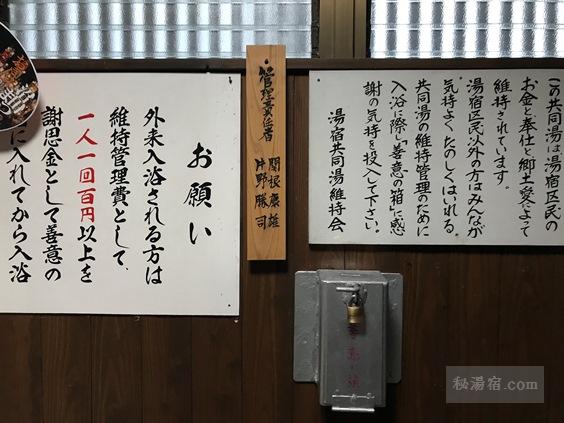 この共同湯は湯宿区民の
お金と奉仕と郷土愛によって
維持されています。
湯宿区民以外の方はみんなが
気持よくたのしくはいれる
共同湯の維持管理のために
入浴に際し「善意の箱」に感
謝の気持を投入して下さい。
湯宿共同湯維持会、
管理責任者
関根康雄
片野勝司
お願い
外来入浴される方は
維持管理費として、
一人一回百円以上を
謝恩金として善意の
に入れてから入浴
善意の箱
秘湯宿.com